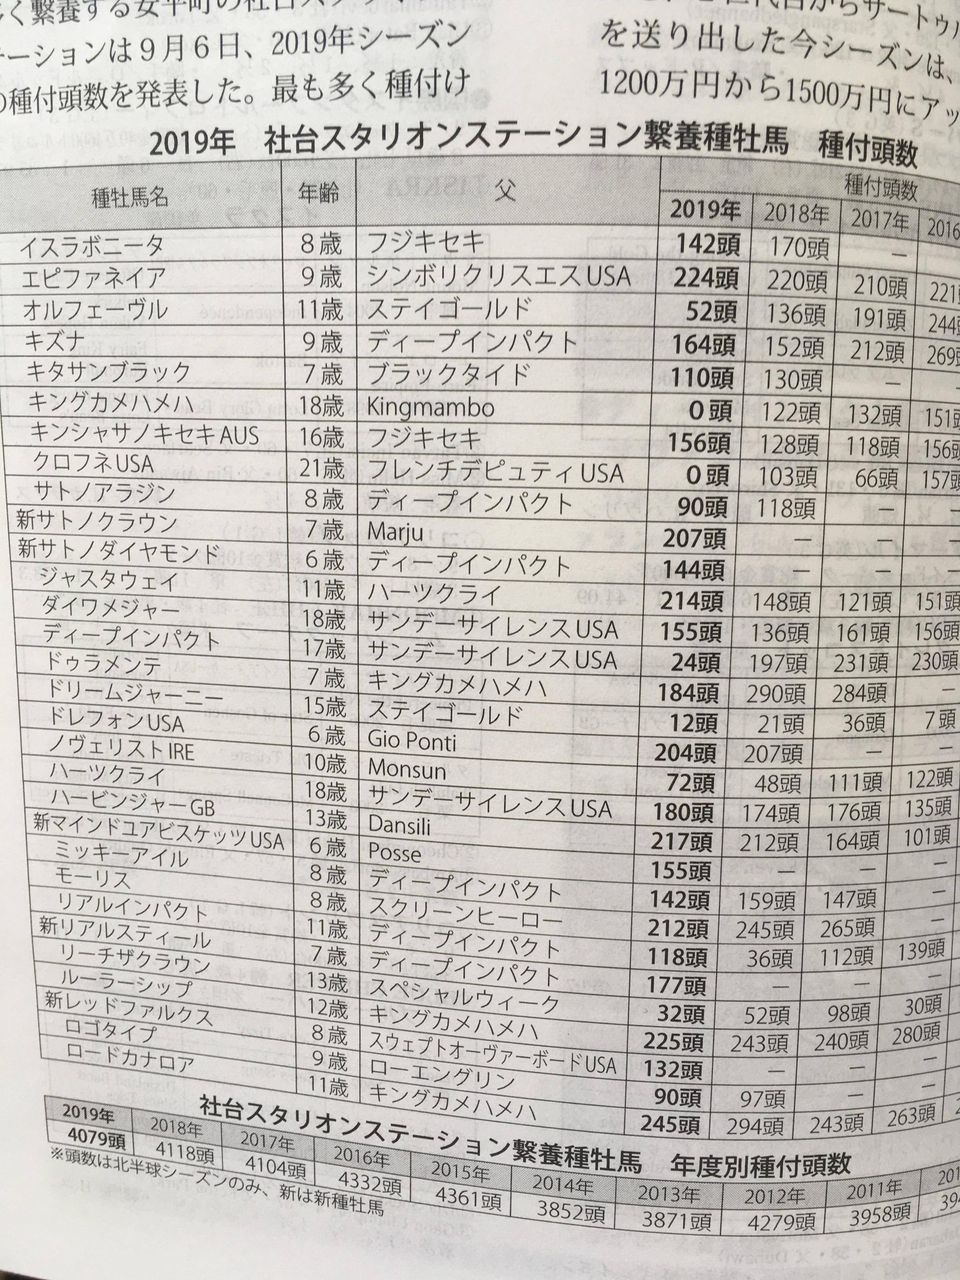 く繋養する安平町の社台ス
テーションは９月６日、2019年シーズン
の種付頭数を発表した。最も多く種付け
を送り出した今シーズンは、
1200万円から1500万円にアッ
2019年 社台スタリオンステーション繋養種牡馬 種付頭数
種牡馬名 年齢 父 種付頭数
2019年 2018年 2017年 2016
イスラボニータ 8歳 フジキセキ 142頭 170頭 －
エピファネイア 9歳 シンボリクリスエスUSA 224頭 220頭 210頭 221
オルフェーヴル 11歳 ステイゴールド 52頭 136頭 191頭 244
キズナ 9歳 ディープインパクト 164頭 152頭 212頭 269
キタサンブラック 7歳 ブラックタイド 110頭 130頭 － －
キングカメハメハ 18歳 Kingmambo 0頭 122頭 132頭 151
キンシャサノキセキAUS 16歳 フジキセキ 156頭 128頭 118頭 156
クロフネUSA 21歳 フレンチデピュティUSA 0頭 103頭 66頭 157
サトノアラジン 8歳 ディープインパクト 90頭 118頭 － －
新サトノクラウン 7歳 Marju 207頭 － － －
新サトノダイヤモンド 6歳 ディープインパクト 144頭 － － －
ジャスタウェイ 11歳 ハーツクライ 214頭 148頭 121頭 151頭
ダイワメジャー 18歳 サンデーサイレンスUSA 155頭 136頭 161頭 156頭
ディープインパクト 17歳 サンデーサイレンスUSA 24頭 197頭 231頭 230頭
ドゥラメンテ 7歳 キングカメハメハ 184頭 290頭 284頭 －
ドリームジャーニー 15歳 ステイゴールド 12頭 21頭 36頭 7頭
ドレフォンUSA 6歳 Gio Ponti 204頭 207頭 － －
ノヴェリストIRE 10歳 Monsun 72頭 48頭 111頭 122頭
ハーツクライ 18歳 サンデーサイレンスUSA 180頭 174頭 176頭 135頭
ハービンジャーGB 13歳 Dansili 217頭 212頭 164頭 101頭
新マインドユアビスケッツUSA 6歳 Posse 155頭 － － －
ミッキーアイル 8歳 ディープインパクト 142頭 159頭 147頭 －
モーリス 8歳 スクリーンヒーロー 212頭 245頭 265頭 －
リアルインパクト 11歳 ディープインパクト 118頭 36頭 112頭 139頭
新リアルスティール 7歳 ディープインパクト 177頭 － － －
リーチザクラウン 13歳 スペシャルウィーク 32頭 52頭 98頭 30頭
ルーラーシップ 12歳 キングカメハメハ 225頭 243頭 240頭 280頭
新レッドファルクス 8歳 スウェプトオーヴァーボードUSA 132頭 － － －
ロゴタイプ 9歳 ローエングリン 90頭 97頭 － －
ロードカナロア 11歳 キングカメハメハ 245頭 294頭 243頭 263頭
社台スタリオンステーション繋養種牡馬 年度別種付頭数
2019年 2018年 2017年 2016年 2015年 2014年 2013年 2012年 2011年
4079頭 4118頭 4104頭 4332頭 4361頭 3852頭 3871頭 4279頭 3958頭
※頭数は北半球シーズンのみ、新は新種牡馬